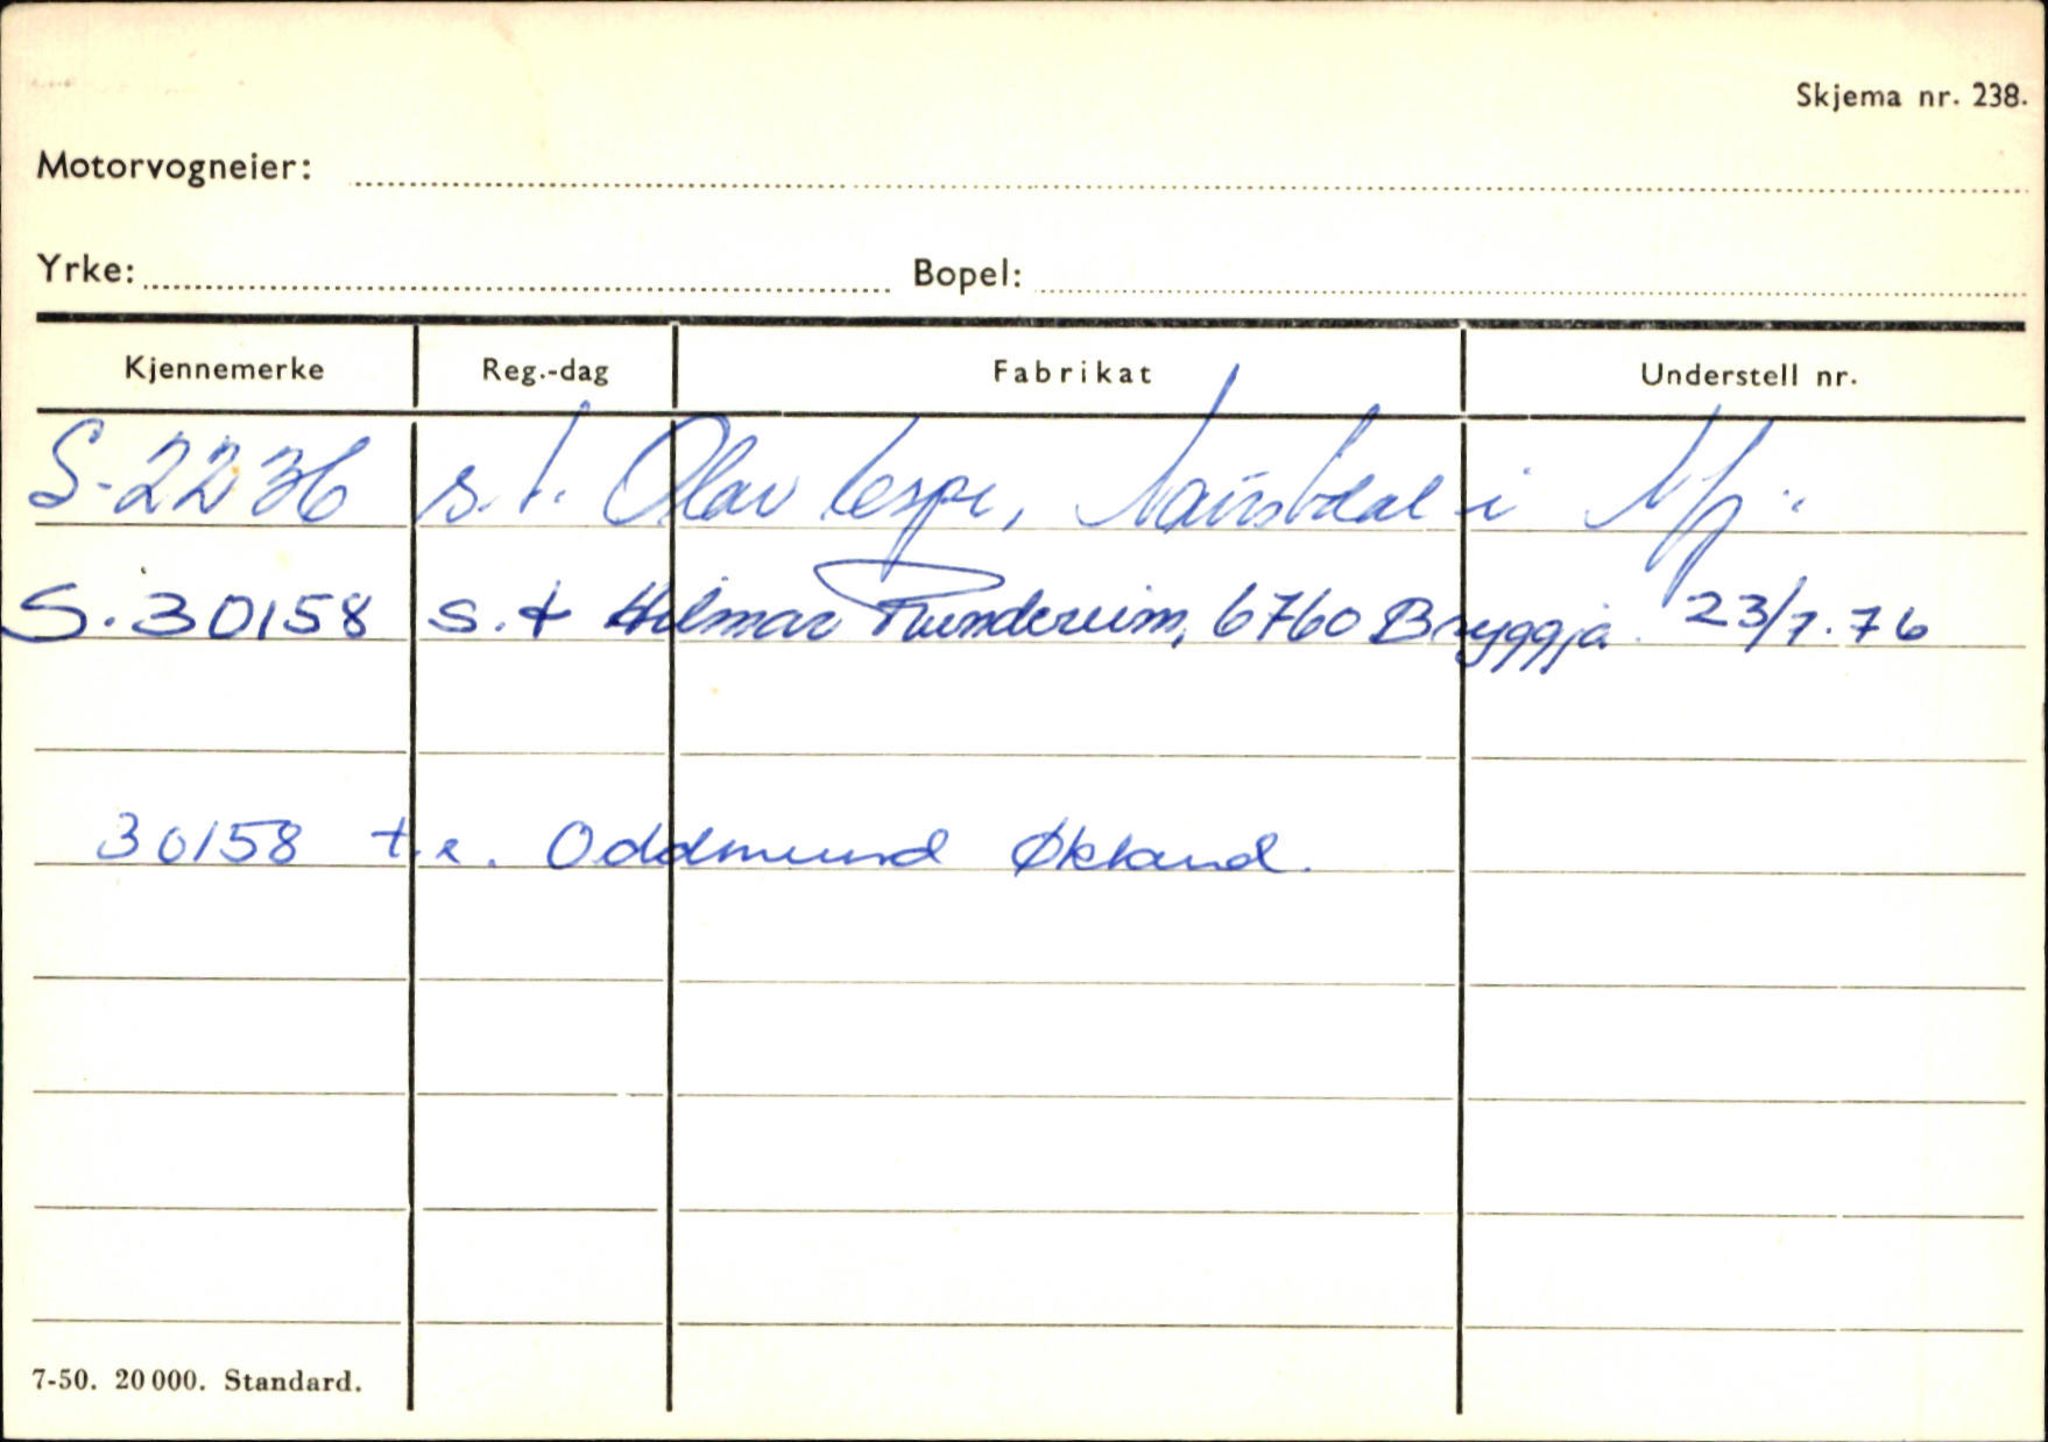 Skjema nr. 238.
Motorvogneier:
Yrke: Bopel:
Kjennemerke Reg.-dag Fabrikat Understell nr.
S-2236 s.t. Olav Løspe, Naustdal i
S.30158 s.t Hilmar Rundereim, 6760 Bryggja. 23/7.76
30158 t.e. Oddmund Økland.
7-50. 20 000. Standard.